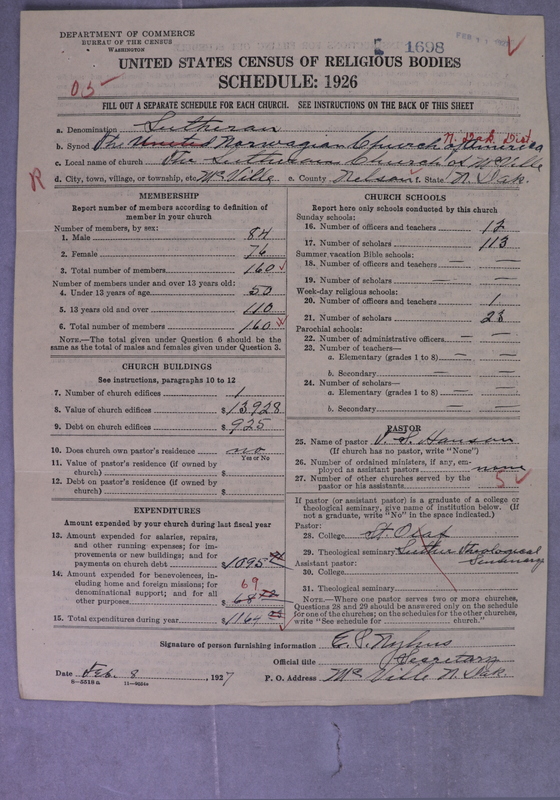 DEPARTMENT OF COMMERCE
BUREAU OF THE CENSUS
WASHINGTON
1698
UNITED STATES CENSUS OF RELIGIOUS BODIES
SCHEDULE: 1926
05
FILL OUT A SEPARATE SCHEDULE FOR EACH CHURCH. SEE INSTRUCTIONS ON THE BACK OF THIS SHEET
a. Denomination Lutheran
b. Synod The United Norwegian Church of America N. Dak. Dist
c. Local name of church The Lutheran Church of McVille
R
d. City, town, village, or township, etc. McVille e. County Nelson f. State N. Dak.
MEMBERSHIP
Report number of members according to definition of
member in your church
Number of members, by sex:
1. Male 84
2. Female 76
3. Total number of members 160
Number of members under and over 13 years old:
4. Under 13 years of age 50
5. 13 years old and over 110
6. Total number of members 160
NOTE.—The total given under Question 6 should be
same as the total of males and females given under Question 3.
CHURCH BUILDINGS
See instructions, paragraphs 10 to 12
7. Number of church edifices 1
8. Value of church edifices $13,928
9. Debt on church edifices $925
10. Does church own pastor's residence no
Yes or No
11. Value of pastor's residence (if owned by
church) $
12. Debt on pastor's residence (if owned by
church) $
EXPENDITURES
Amount expended by your church during last fiscal year
13. Amount expended for salaries, repairs,
and other running expenses; for im-
provements or new buildings; and for
payments on church debt $1095
14. Amount expended for benevolences, in-
cluding home and foreign missions; for
denominational support; and for all
other purposes $68
69
15. Total expenditures during year $1164
CHURCH SCHOOLS
Report here only schools conducted by this church
Sunday schools:
16. Number of officers and teachers 12
17. Number of scholars 113
Summer vacation Bible schools:
18. Number of officers and teachers —
19. Number of scholars —
Week-day religious schools:
20. Number of officers and teachers 1
21. Number of scholars 28
Parochial schools:
22. Number of administrative officers —
23. Number of teachers—
a. Elementary (grades 1 to 8) —
b. Secondary —
24. Number of scholars—
a. Elementary (grades 1 to 8) —
b. Secondary —
PASTOR
25. Name of pastor V. S. Hanson
(If church has no pastor, write "None")
26. Number of ordained ministers, if any, em-
ployed as assistant pastors none
27. Number of other churches served by the
pastor or his assistants 5
If pastor (or assistant pastor) is a graduate of a college or
theological seminary, give name of institution below. (If
not a graduate, write "No" in the space indicated.)
Pastor:
28. College St. Olaf
29. Theological seminary Luther Theological
Seminary
Assistant pastor:
30. College
31. Theological seminary
NOTE.—Where one pastor serves two or more churches,
Questions 28 and 29 should be answered only on the schedule
for one of the churches; on the schedules for the other churches,
write "See schedule for church."
Signature of person furnishing information E. P. Nyhus
Official title Secretary
Date Feb. 8, 1927
P. O. Address McVille N. Dak.